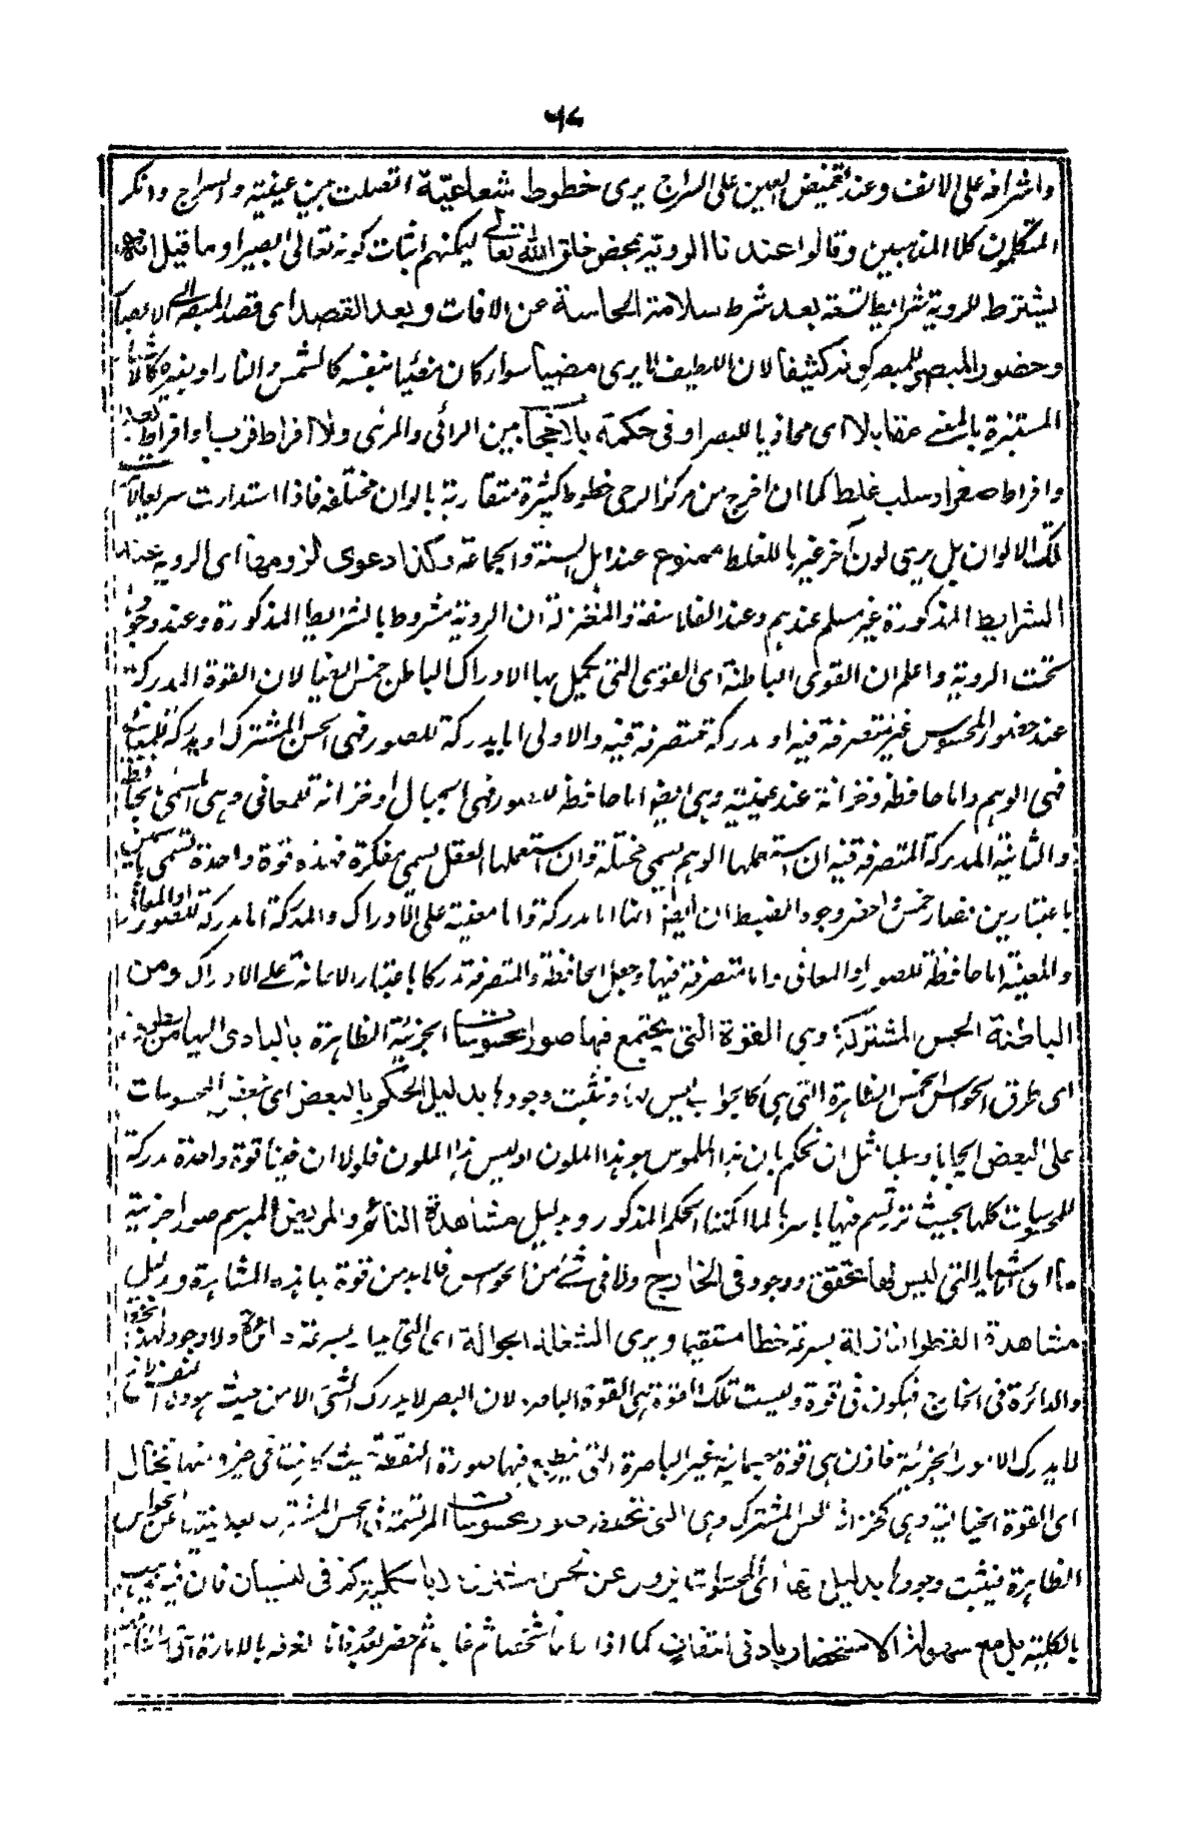 ٦٧
واشرافه على الانف وعند تغميض العين على السراج يرى خطوط شعاعية اتصلت بين عينيه والسراج وانكر
المتكلمون كلا المذهبين وقالوا عندنا الروية بمحض خلق الله تعالى ليمكنهم اثبات كونه تعالى البصير او ما قيل انه
يشترط للروية شرايط تسعة بعد شرط سلامة الحاسة عن الافات وبعد القصد اى قصد المبصر الى الابصار
وحضور المبصر للمبصر كونه كثيفا لان اللطيف لا يرى مضيا سواء كان مضيًا بنفسه كالشمس والنار او بغيره كالاشياء
المستنيرة بالشمس مقابلا اى محاذيا للبصر او فى حكمه بلا حجاب بين الرائى والمرئى ولا افراط قرب او افراط بعد
وافراط صغر او سلب غلط كما ان اخرج من مركز الرحى خطوط كثيرة متقاربة بالوان مختلفة فاذا استدارت سريعا لا
تلك الالوان بل يرى لون آخر غيرها للغلط ممنوع عند اهل السنة والجماعة وكذا دعوى لزومها اى الروية عند
الشرايط المذكورة غير مسلم عندهم وعند الفلاسفة والمعتزلة ان الروية مشروط بالشرايط المذكورة وعند وجود
تحت الروية واعلم ان القوى الباطنة اى القوى التى يحصل بها الادراك الباطن خمس ايضا لان القوة المدركة
عند حضور المحسوس غير متصرفة فيه او مدركة متصرفة فيه والاولى اما مدركة للصور فهى الحس المشترك او مدركة للمعانى
فهى الوهم واما حافظة وخزانة عند غيبته وهى ايضا اما حافظة للصور فهى الخيال او خزانة للمعانى وهى المسمى بالحافظة
والثانية المدركة المتصرفة فيه ان استعملها الوهم يسمى مخيلة وان استعملها العقل يسمى مفكرة فهذه قوة واحدة تسمى باسمين
باعتبارين فصار خمس واحضر وجوه الضبط ان ايضا انها اما مدركة واما معينة على الادراك والمدركة اما مدركة للصور او المعانى
والمعينة اما حافظة للصور او المعانى واما متصرفة فيها وجعل الحافظة والمتصرفة مدركا باعتبار الاعانة على الادراك ومن
الباطنة الحس المشترك وهى القوة التى يجتمع فيها صور المحسوسات الجزئية الظاهرة بالبادى اليها من طرق
اى طرق الحواس الخمس الظاهرة التى هى كالجواسيس لها ويثبت وجودها بدليل الحكم بالبعض اى بعض المحسوسات
على البعض ايجابا وسلبا مثل ان نحكم بان هذا الملموس هو هذا الملون او ليس هذا الملون فلولا ان فينا قوة واحدة مدركة
للمحسوسات كلها بحيث ترتسم فيها باسرها لما امكننا الحكم المذكور وبدليل مشاهدة النائم والمريض المبرسم صورا جزئية
التى ليس لها تحقق ووجود فى الخارج ولا فى شئ من الحواس فلا بد من قوة بها هذه المشاهدة وبدليل
مشاهدة القطرة النازلة بسرعة خطا مستقيما ويرى الشعلة الجوالة اى التى يدار بسرعة دائرة ولا وجود لهذه الخطوط
والدائرة فى الخارج فيكون فى قوة وليست تلك القوة هى القوة الباصرة لان البصر لا يدرك الشئ الا من حيث هو
لا يدرك الامور الجزئية فاذن هى قوة جسمانية غير الباصرة التى ينطبع فيها صورة النقطة حيث كانت فى حيز ومنها الخيال
اى القوة الخيالية وهى كخزانة للحس المشترك وهى التى تحفظ صور المحسوسات المرتسمة فى الحس المشترك بعد غيبتها عن الحواس
الظاهرة فيثبت وجودها بدليل ان المحسوسات يزول عن الحس المشترك لا بالكلية كما فى النسيان فان فيه يغيب
بالكلية بل مع سهولة الاستحضار بادنى التفات كما اذا راينا شخصا ثم غاب ثم حضر بعد فانا نعرفه بالامارة التى